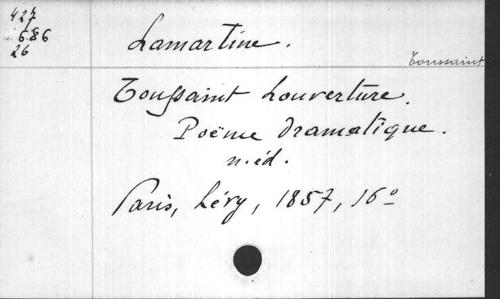 427
686
26
Lamartine.
Toussaint
Toussaint Louverture.
Poëme dramatique.
n. éd.
Paris, Lévy, 1857, 16º